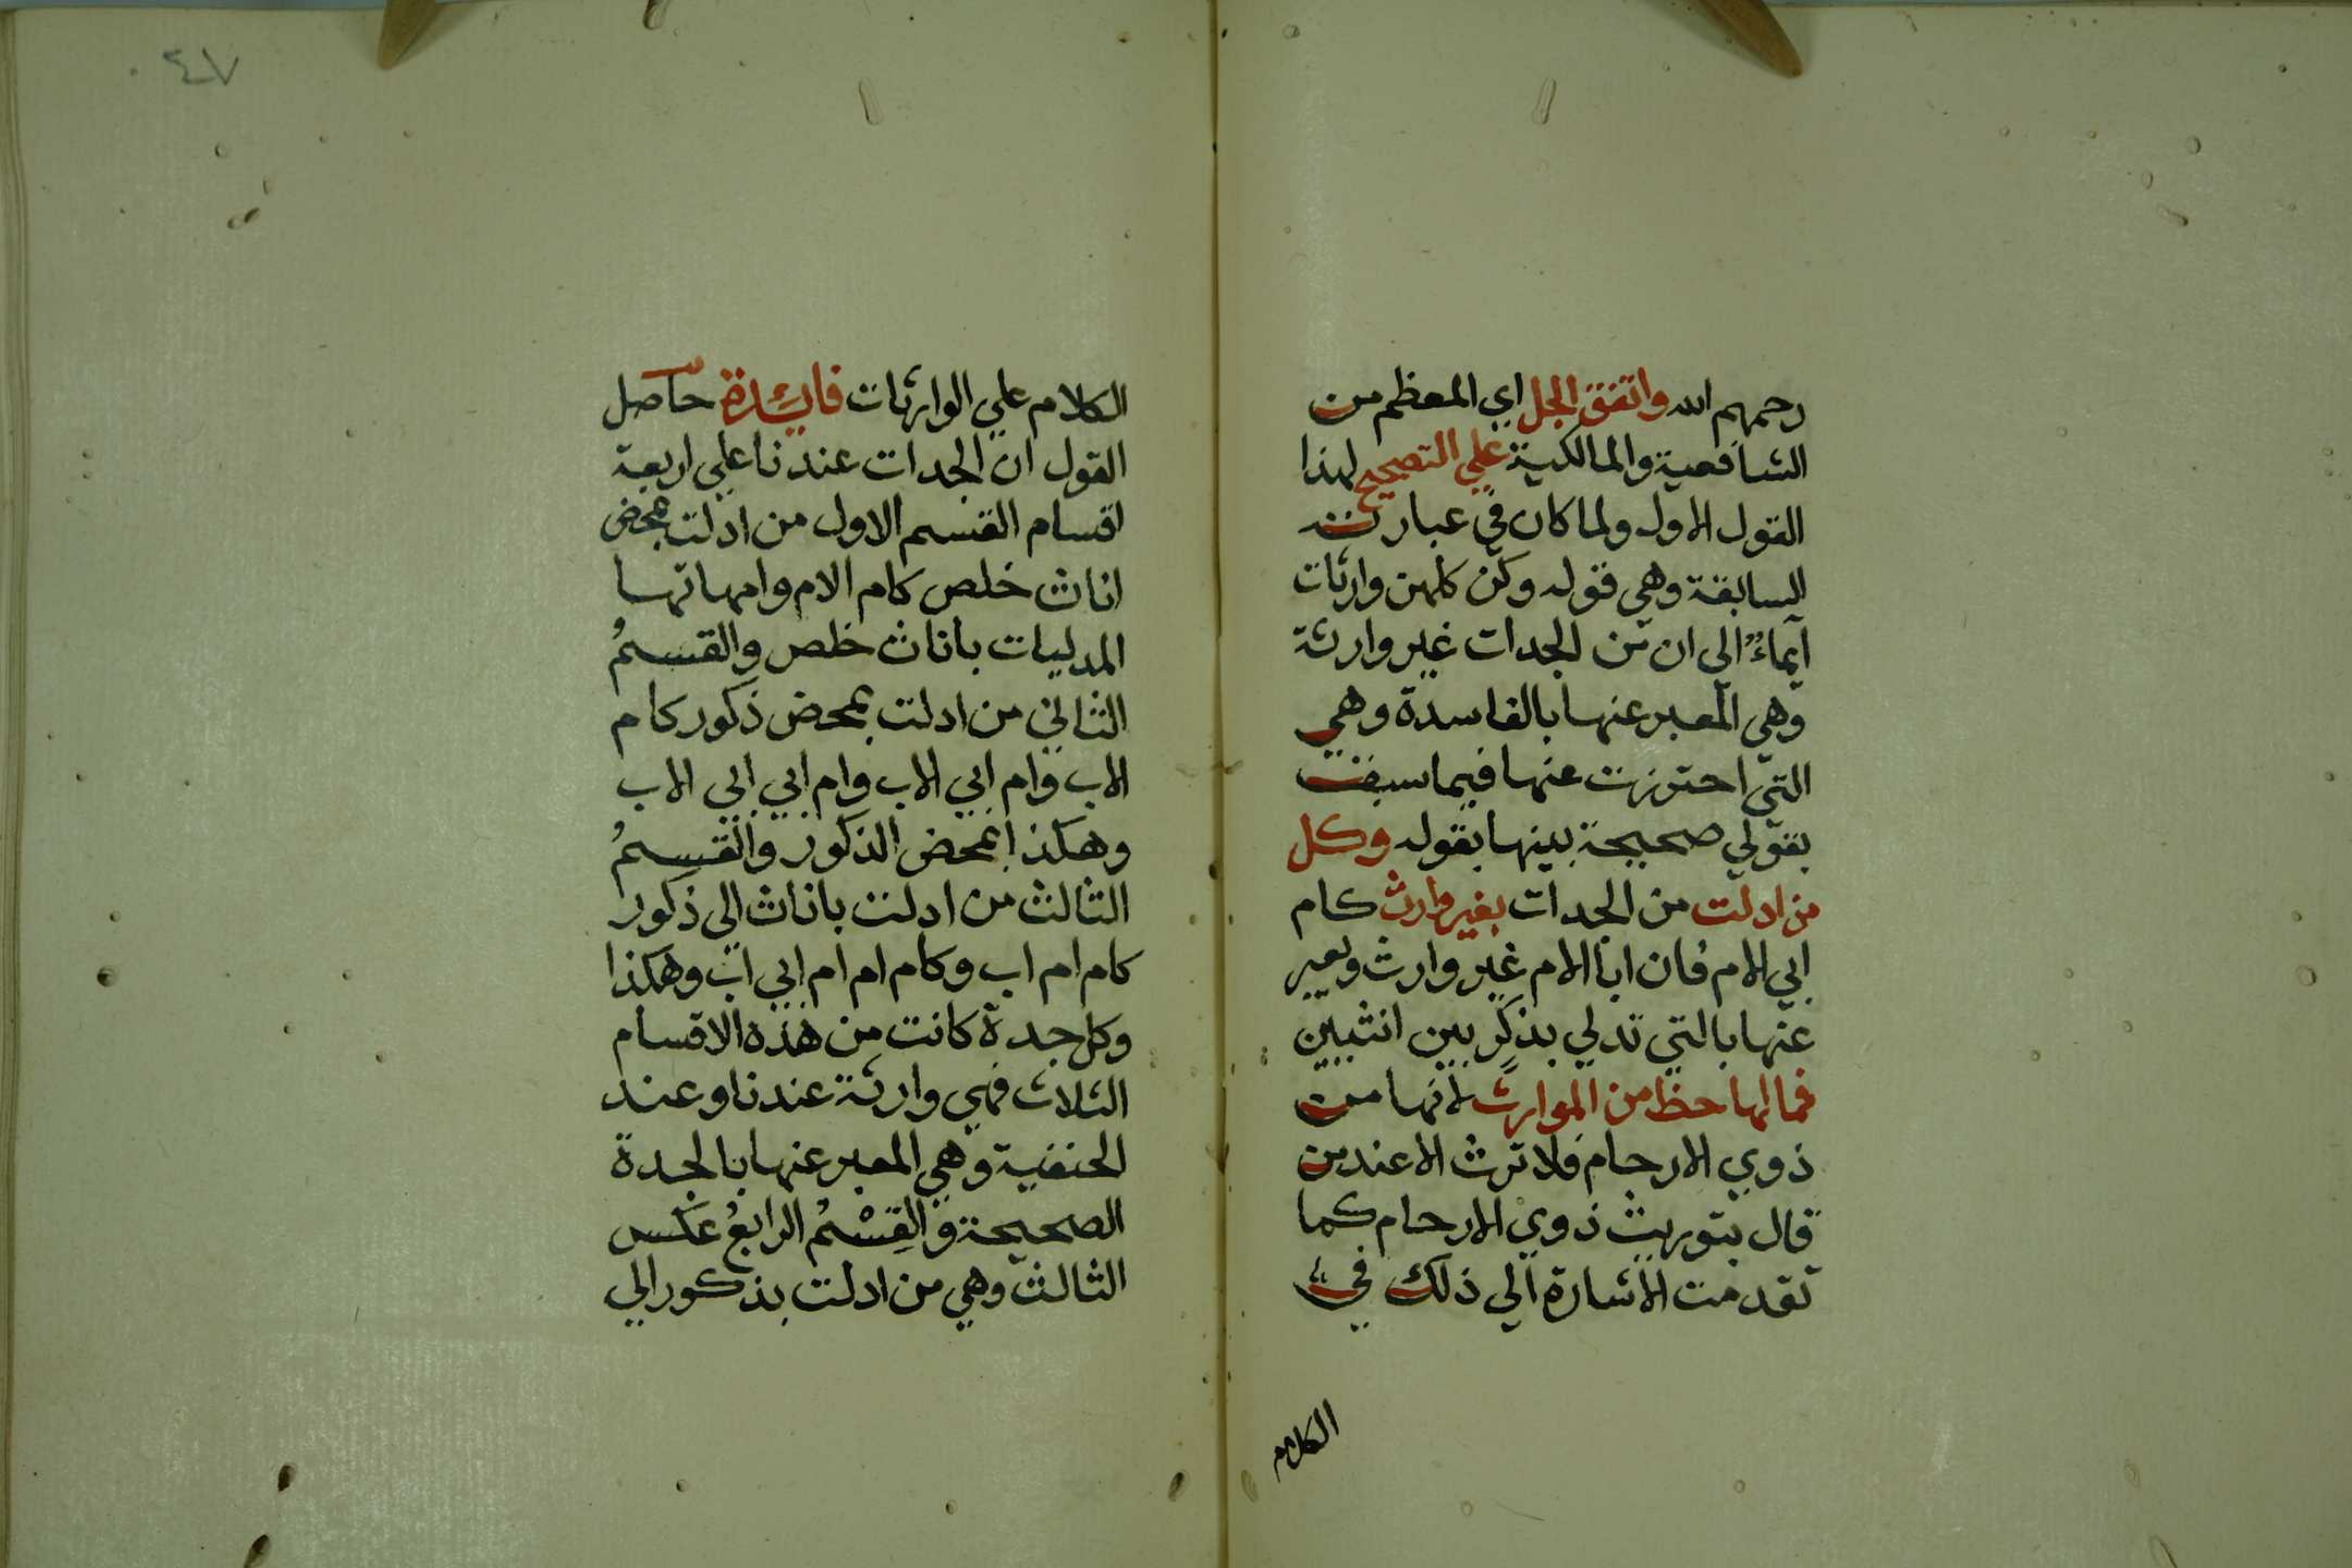 رحمهم الله واتفق الجل اي المعظم من
الشافعية والمالكية علي التصحيح لهذا
القول الاول ولما كان في عبارته
السابقة وهي قوله وكن كلهن وارثات
ايماءً الي ان من الجدات غير وارثة
وهي المعبر عنها بالفاسدة وهي
التي احترزت عنها فيما سبقت
بقولي صحيحة بينها بقوله وكل
من ادلت من الجدات بغير وارث كام
ابي الام فان ابا الام غير وارث ويعبر
عنها بالتي تدلي بذكرٍ بين انثيين
فما لها حظ من الموارث لانها من
ذوي الارحام فلا ترث الا عند من
قال بتوريث ذوي الارحام كما
تقدمت الاشارة الي ذلك في
الكلام
٤٧
الكلام علي الوارثات فايئدة حاصل
القول ان الجدات عندنا علي اربعة
اقسام القسم الاول من ادلت بمحض
اناث خلص كام الام وامهاتها
المدليات باناث خلص والقسمُ
الثاني من ادلت بمحض ذكور كام
الاب وام ابي الاب وام ابي ابي الاب
وهكذا بمحض الذكور والقسمُ
الثالث من ادلت باناث الي ذكور
كام ام اب وكام ام ام ابي اب وهكذا
وكل جدة كانت من هذه الاقسام
الثلاث فهي وارثة عندنا وعند
الحنفية وهي المعبر عنها بالجدة
الصحيحة والقِسْمُ الرابعُ عكس
الثالث وهي من ادلت بذكور الي